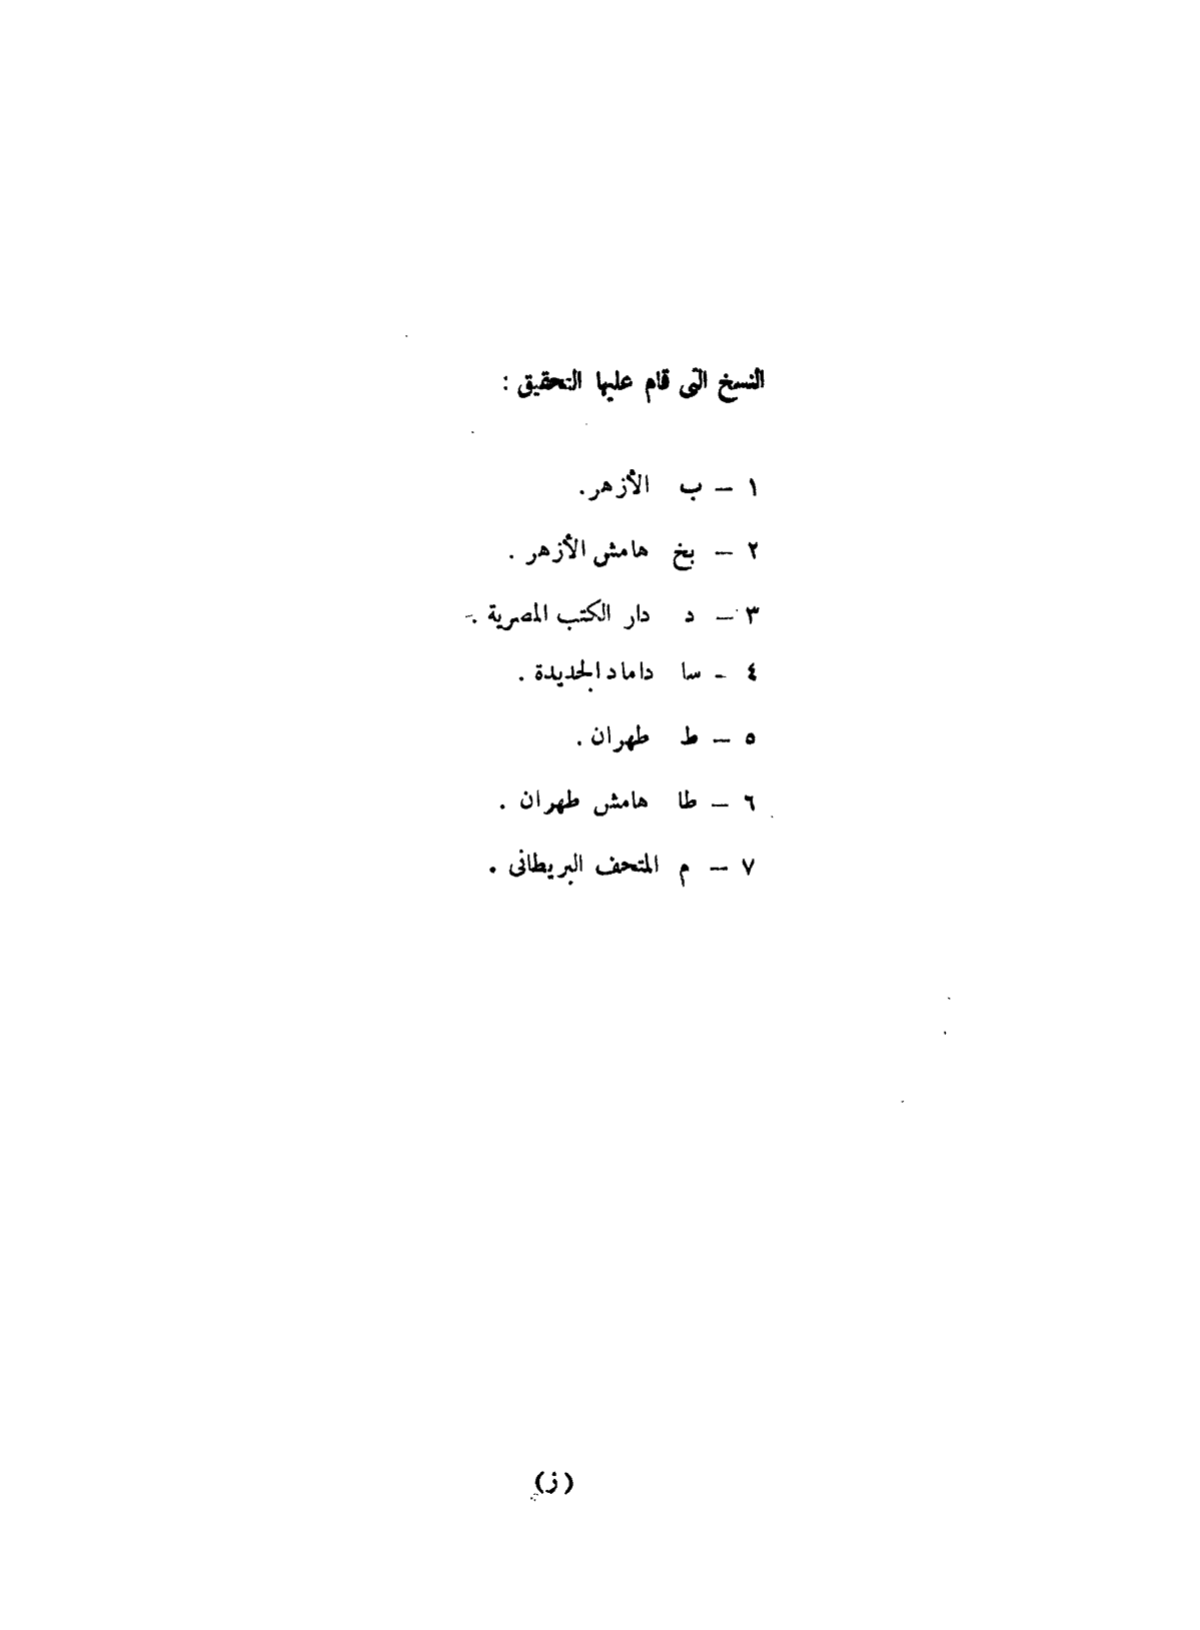 النسخ التى قام عليها التحقيق :
١ – ب الأزهر.
٢ – بخ هامش الأزهر .
٣ – د دار الكتب المصرية .
٤ - سا داماد الجديدة .
٥ – ط طهران .
٦ – طا هامش طهران .
٧ – م المتحف البريطانى .
(ز)